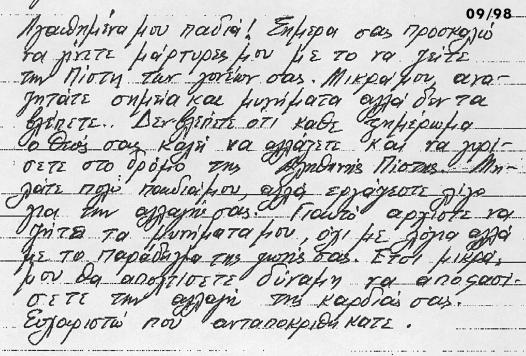 09/98
Αγαπημένα μου παιδιά! Σήμερα σας προσκαλώ
να γίνετε μάρτυρες μου με το να ζείτε
την Πίστη των γονέων σας. Μικρά μου, ανα-
ζητάτε σημεία και μηνύματα αλλά δεν τα
βλέπετε.. Δεν βλέπετε οτι καθε ξημέρωμα
ο Θεός σας καλεί να αλλάξετε και να γυρί-
σετε στο δρόμο της Αληθινής Πίστης. Μι-
λάτε πολύ παιδιά μου, αλλά εργάζεστε λίγο
για την αλλαγή σας. Γιαυτό αρχίστε να
ζήτε τα μυνήματα μου, όχι με λόγια αλλά
με το παράδειγμα της ζωής σας. Ετσι μικρά
μου θα αποκτίσετε δύναμη να αποφασί-
σετε την αλλαγή της καρδιάς σας.
Ευχαριστώ που ανταποκριθήκατε.